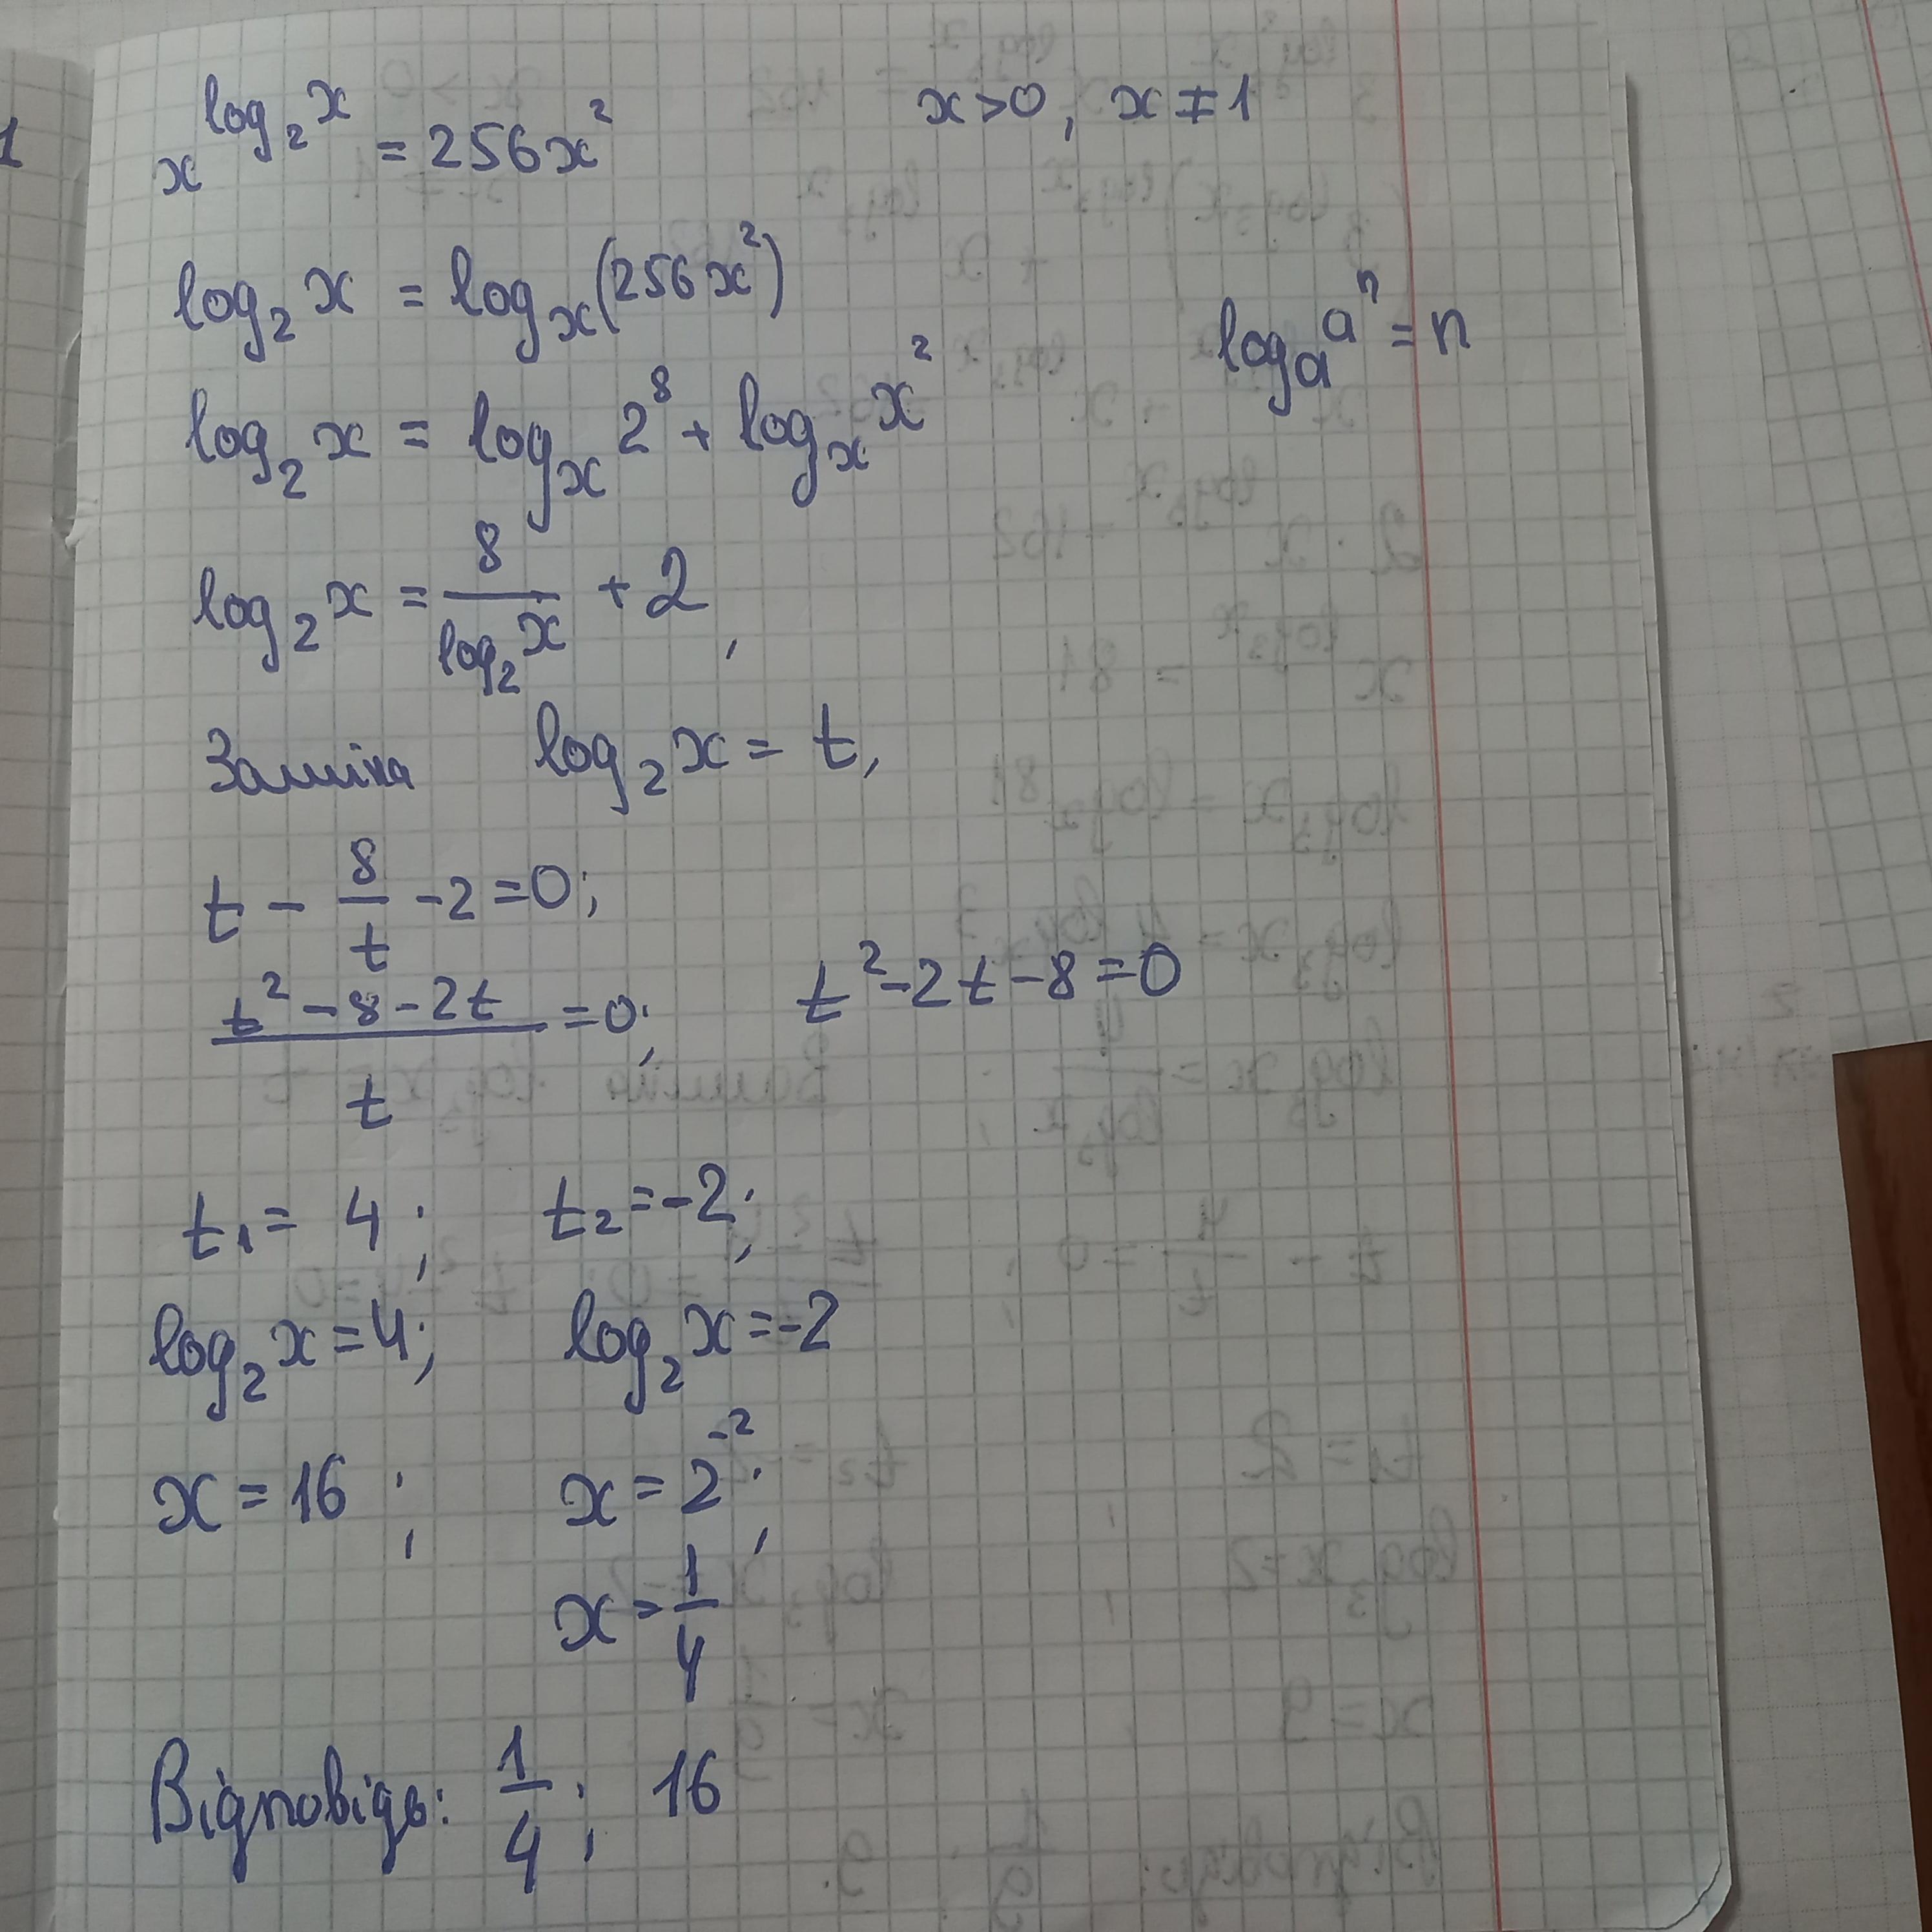 1
x^{log₂x} = 256x²    x>0, x≠1
log₂x = logₓ(256x²)
logₐaⁿ = n
log₂x = logₓ2⁸ + logₓx²
log₂x = 8/log₂x + 2,
Заміна log₂x = t,
t - 8/t - 2 = 0;
(t² - 8 - 2t)/t = 0;    t² - 2t - 8 = 0
t₁ = 4;    t₂ = -2;
log₂x = 4;    log₂x = -2
x = 16;    x = 2⁻²;
x = 1/4
Відповідь: 1/4; 16